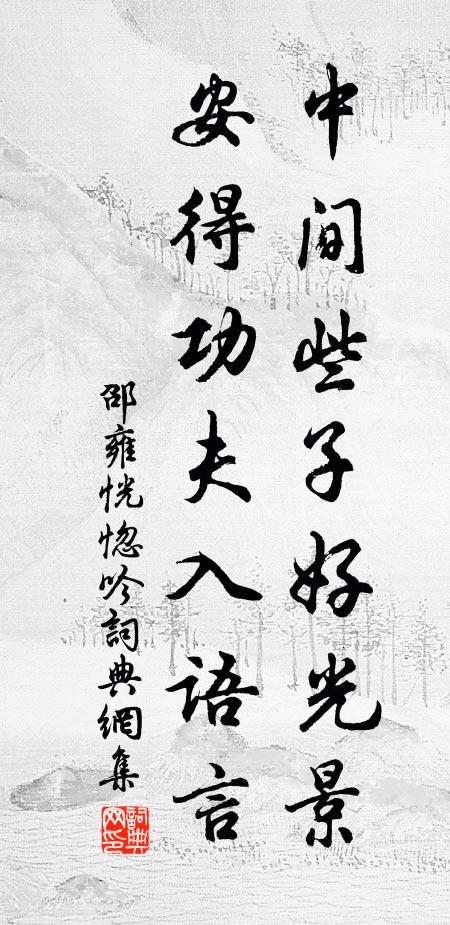 中间些子好光景
安得功夫入语言
邵雍恍惚吟詞典網集
詞典網印